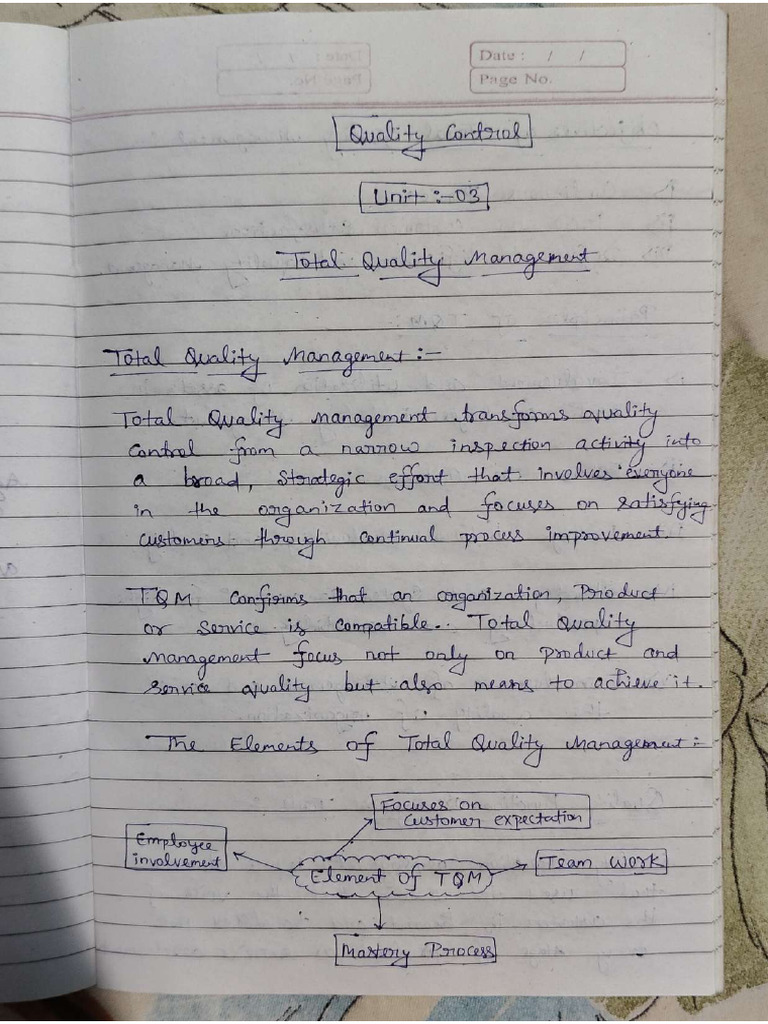 Date : / /
Page No.
Quality Control
Unit :-03
Total Quality Management
Total Quality Management :-
Total Quality Management transforms quality
control from a narrow inspection activity into
a broad, strategic effort that involves everyone
in the organization and focuses on satisfying
customers through continual process improvement.
TQM confirms that an organization, Product
or service is compatible.. Total Quality
Management focus not only on product and
service quality but also means to achieve it.
The Elements of Total Quality Management :-
Focuses on
customer expectation
Employee
involvement
Element of TQM
Team Work
Mastery Process